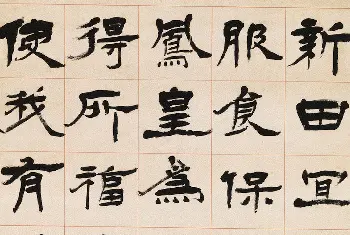 新田宜
服食保
鳳皇為
得所福
使我有